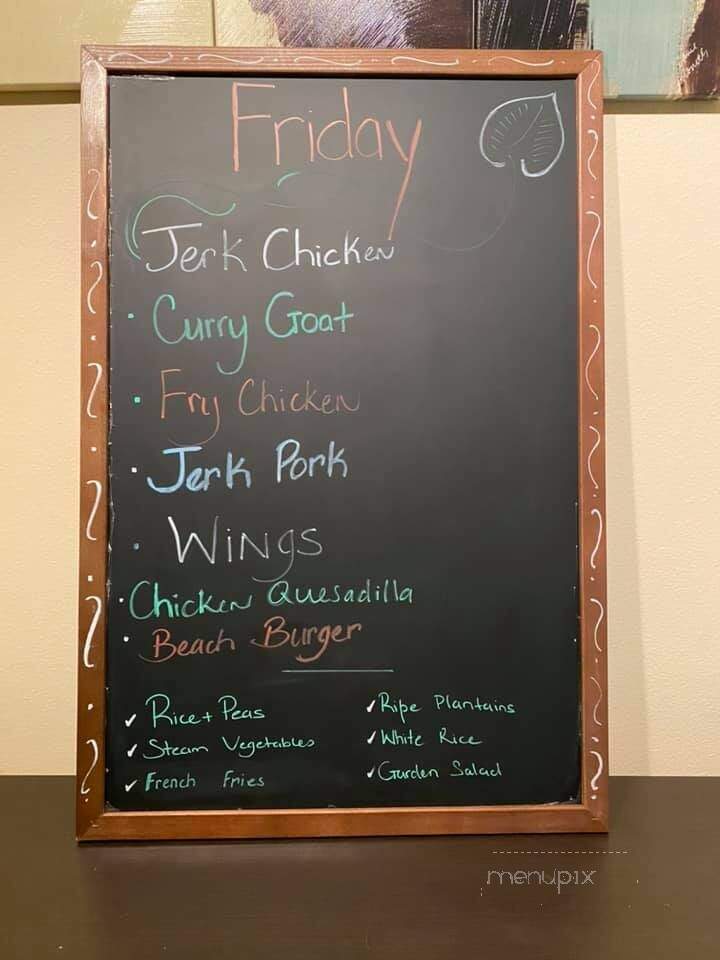 Friday
Jerk Chicken
· Curry Goat
· Fry Chicken
· Jerk Pork
· Wings
· Chicken Quesadilla
· Beach Burger
✓ Rice + Peas
✓ Steam Vegetables
✓ French Fries
✓ Ripe Plantains
✓ White Rice
✓ Garden Salad
menupix